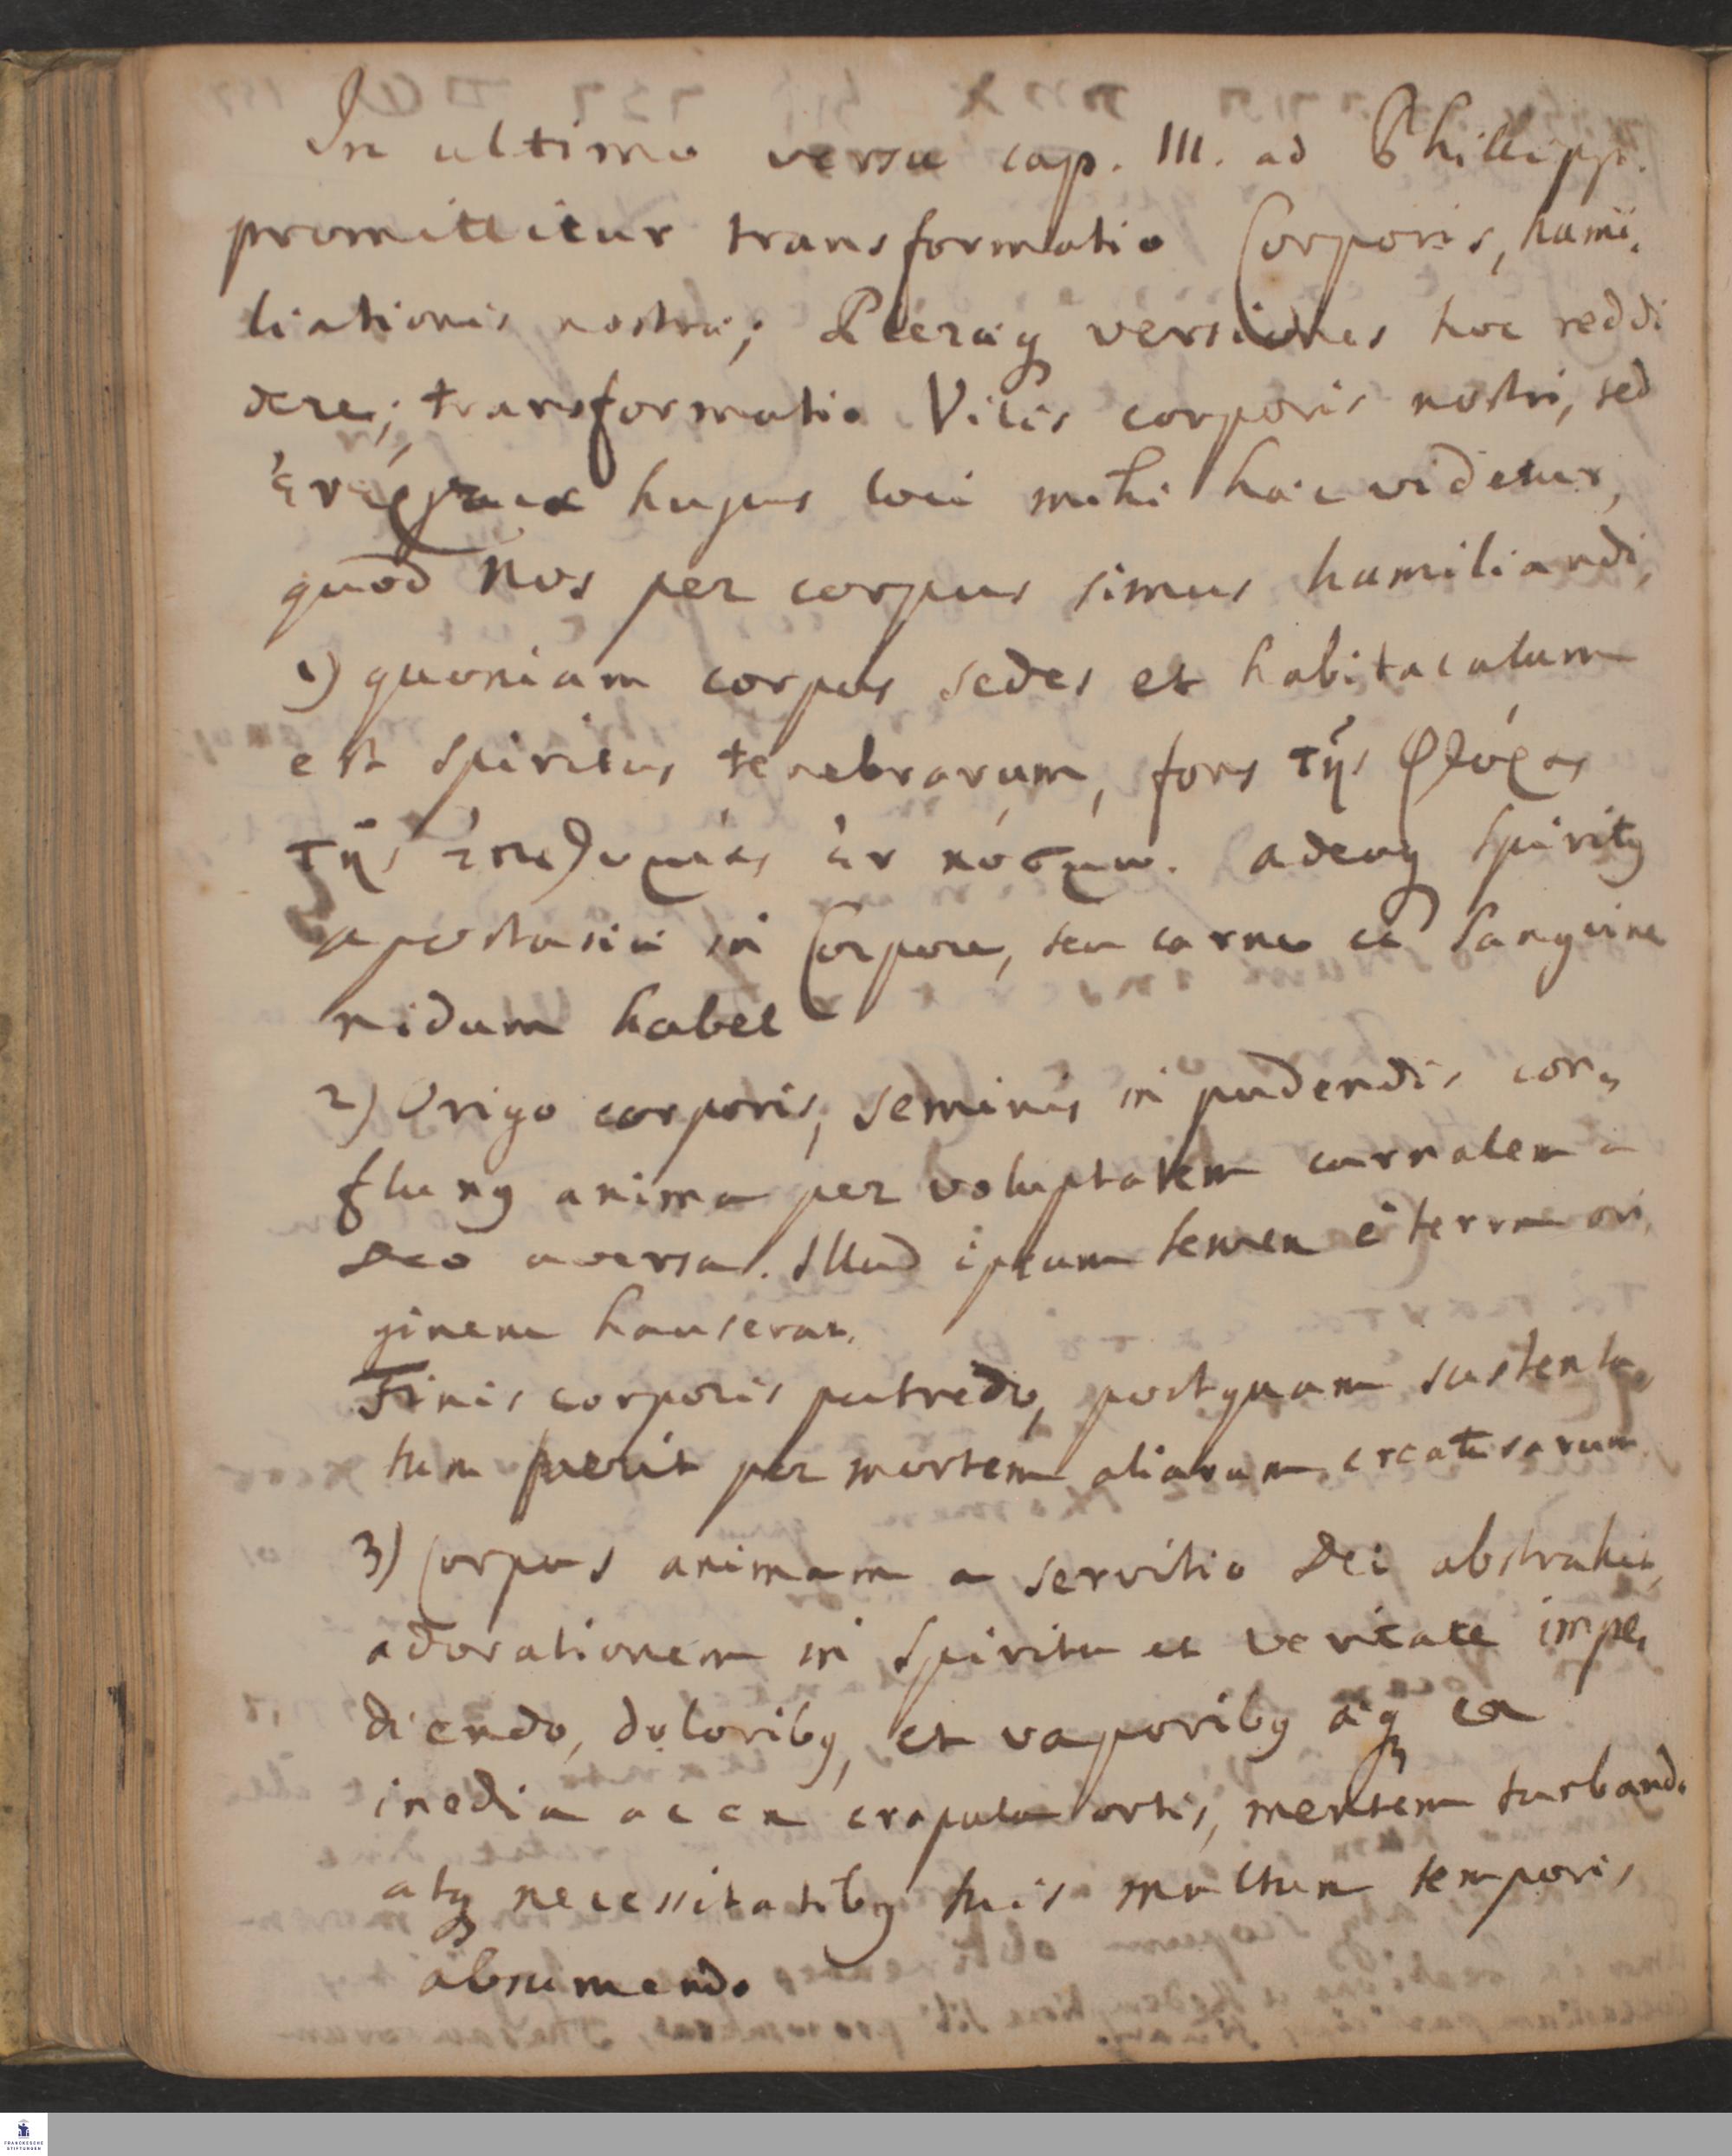 In ultimo versu cap. III. ad Phillipp.
promittitur transformatio Corporis, humi,
liationis nostræ; Pleræq versiones hoc reddi
dere; transformatio Vilis corporis nostri, sed
ἐνέργεια hujus loci mihi hæc videtur,
quod Nos per corpus simus humiliandi,
1) quoniam corpus sedes et habitaculum
est Spiritus tenebrarum, fons τῆς φθόρας
τῆς ἐπιθυμίας ἐν κόσμω. adeoq Spiritq
apostasiæ in Corpore, seu carne et Sanguine
nidum habet
2) Origo corporis, seminis in pudendis con,
fluxq anima per voluptatem carnalem a
Deo aversa. Illud ipsum semen è terra ori,
ginem hauserat.
Finis corporis putredo, postquam sustenta,
tum fuerit per mortem aliarum creaturarum
3) Corpus animam a servitio Dei abstrahit,
adorationem in Spiritu et veritate impe,
diendo, doloribq, et vaporibq æq ex
inedia ac ex crapula ortis, mentem turbando
atq necessitatibq suis multum temporis
absumendo
FRANCKESCHE
STIFTUNGEN